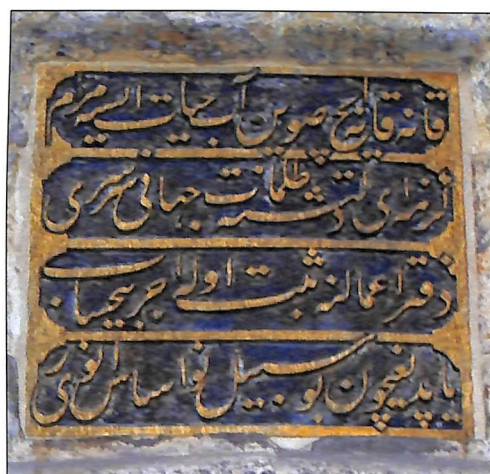 قانه قانه ایچ صوین آب حیات ایسه مرام
گزمه ای دلتشنه ظلمات جهانی سرسری
دفتر اعمالنه ثبت اوله اجر بیحساب
یاپدیغیچون بو سبیل نو اساس انوری